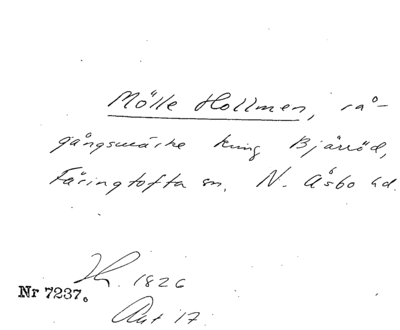 Mölle Hollmen, rå-
gångsmärke kring Bjärröd,
Färingtofta sn. N. Åsbo hd.
1826
Nr 7237.
Akt 17